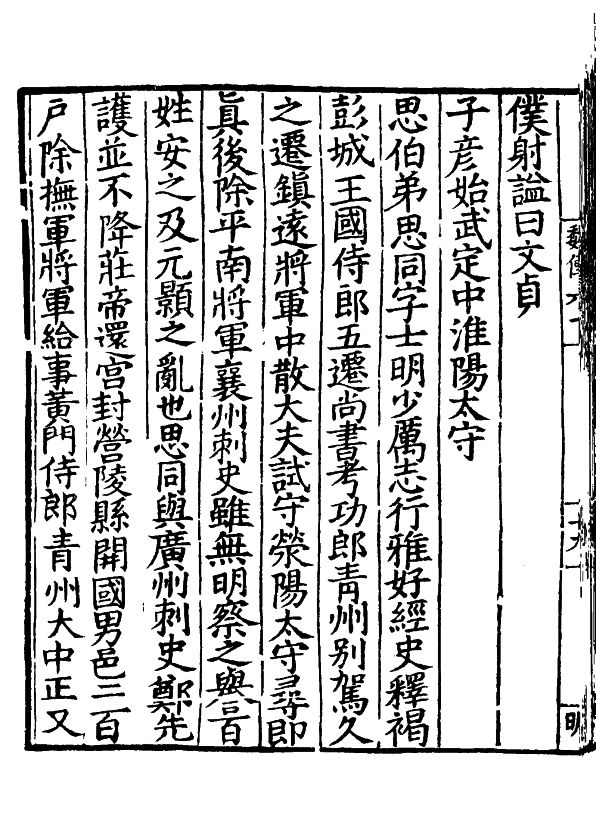 僕射謚曰文貞
子彥始武定中淮陽太守
思伯弟思同字士明少厲志行雅好經史釋褐
彭城王國侍郎五遷尚書考功郎青州別駕久
之遷鎮遠將軍中散大夫試守滎陽太守尋即
真後除平南將軍襄州刺史雖無明察之譽百
姓安之及元顥之亂也思同與廣州刺史鄭先
護並不降莊帝還宮封營陵縣開國男邑三百
戶除撫軍將軍給事黃門侍郎青州大中正又